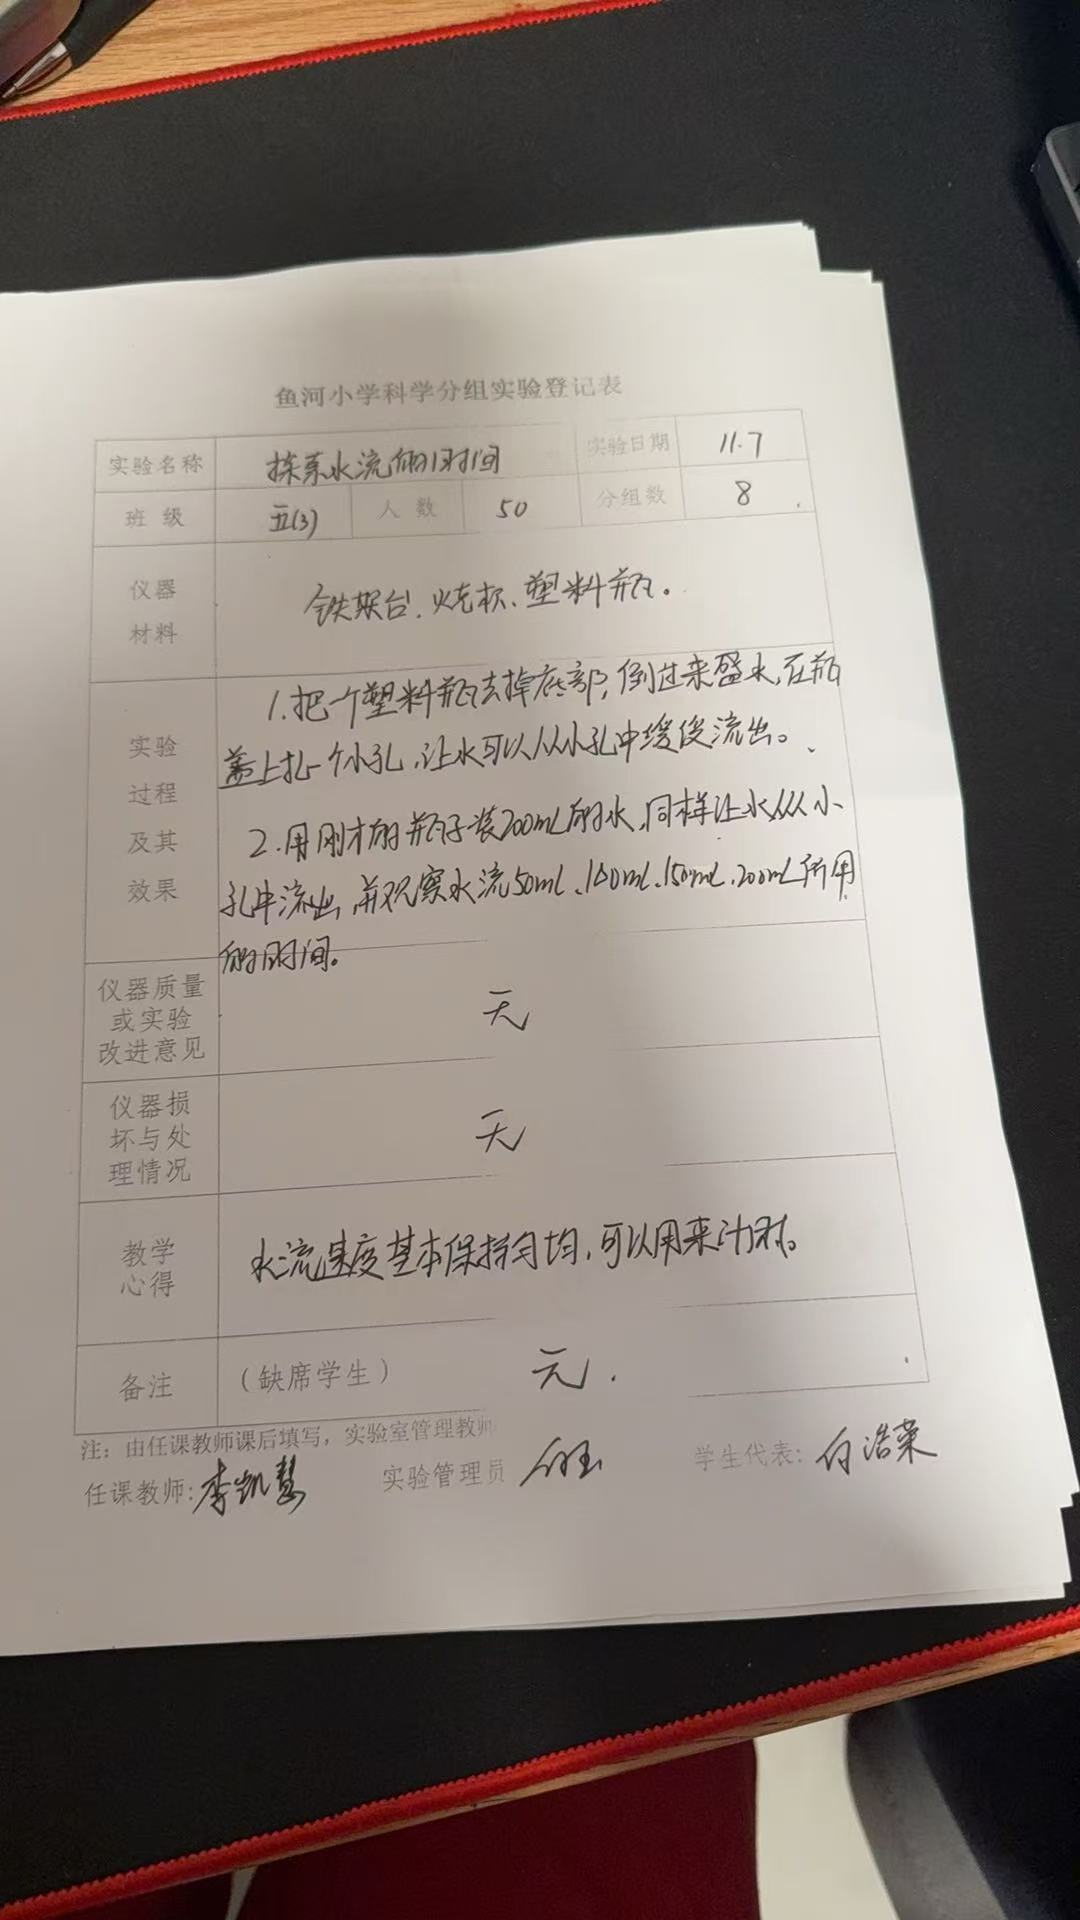 鱼河小学科学分组实验登记表
实验名称 探索水流的时间 实验日期 11.7
班 级 五(3) 人 数 50 分组数 8
仪器
材料
铁架台、烧杯、塑料瓶。
实验
过程
及其
效果
1.把一个塑料瓶去掉底部,倒过来盛水,在瓶
盖上扎一个小孔,让水可以从小孔中缓缓流出。
2.用刚才的瓶子装200mL的水,同样让水从小
孔中流出,并观察水流50mL、100mL、150mL、200mL所用
的时间。
仪器质量
或实验
改进意见
无
仪器损
坏与处
理情况
无
教学
心得
水流速度基本保持匀均,可以用来计时。
备注 (缺席学生) 无.
注:由任课教师课后填写,实验室管理教师
任课教师:李凯慧 实验管理员 学生代表:白浩荣